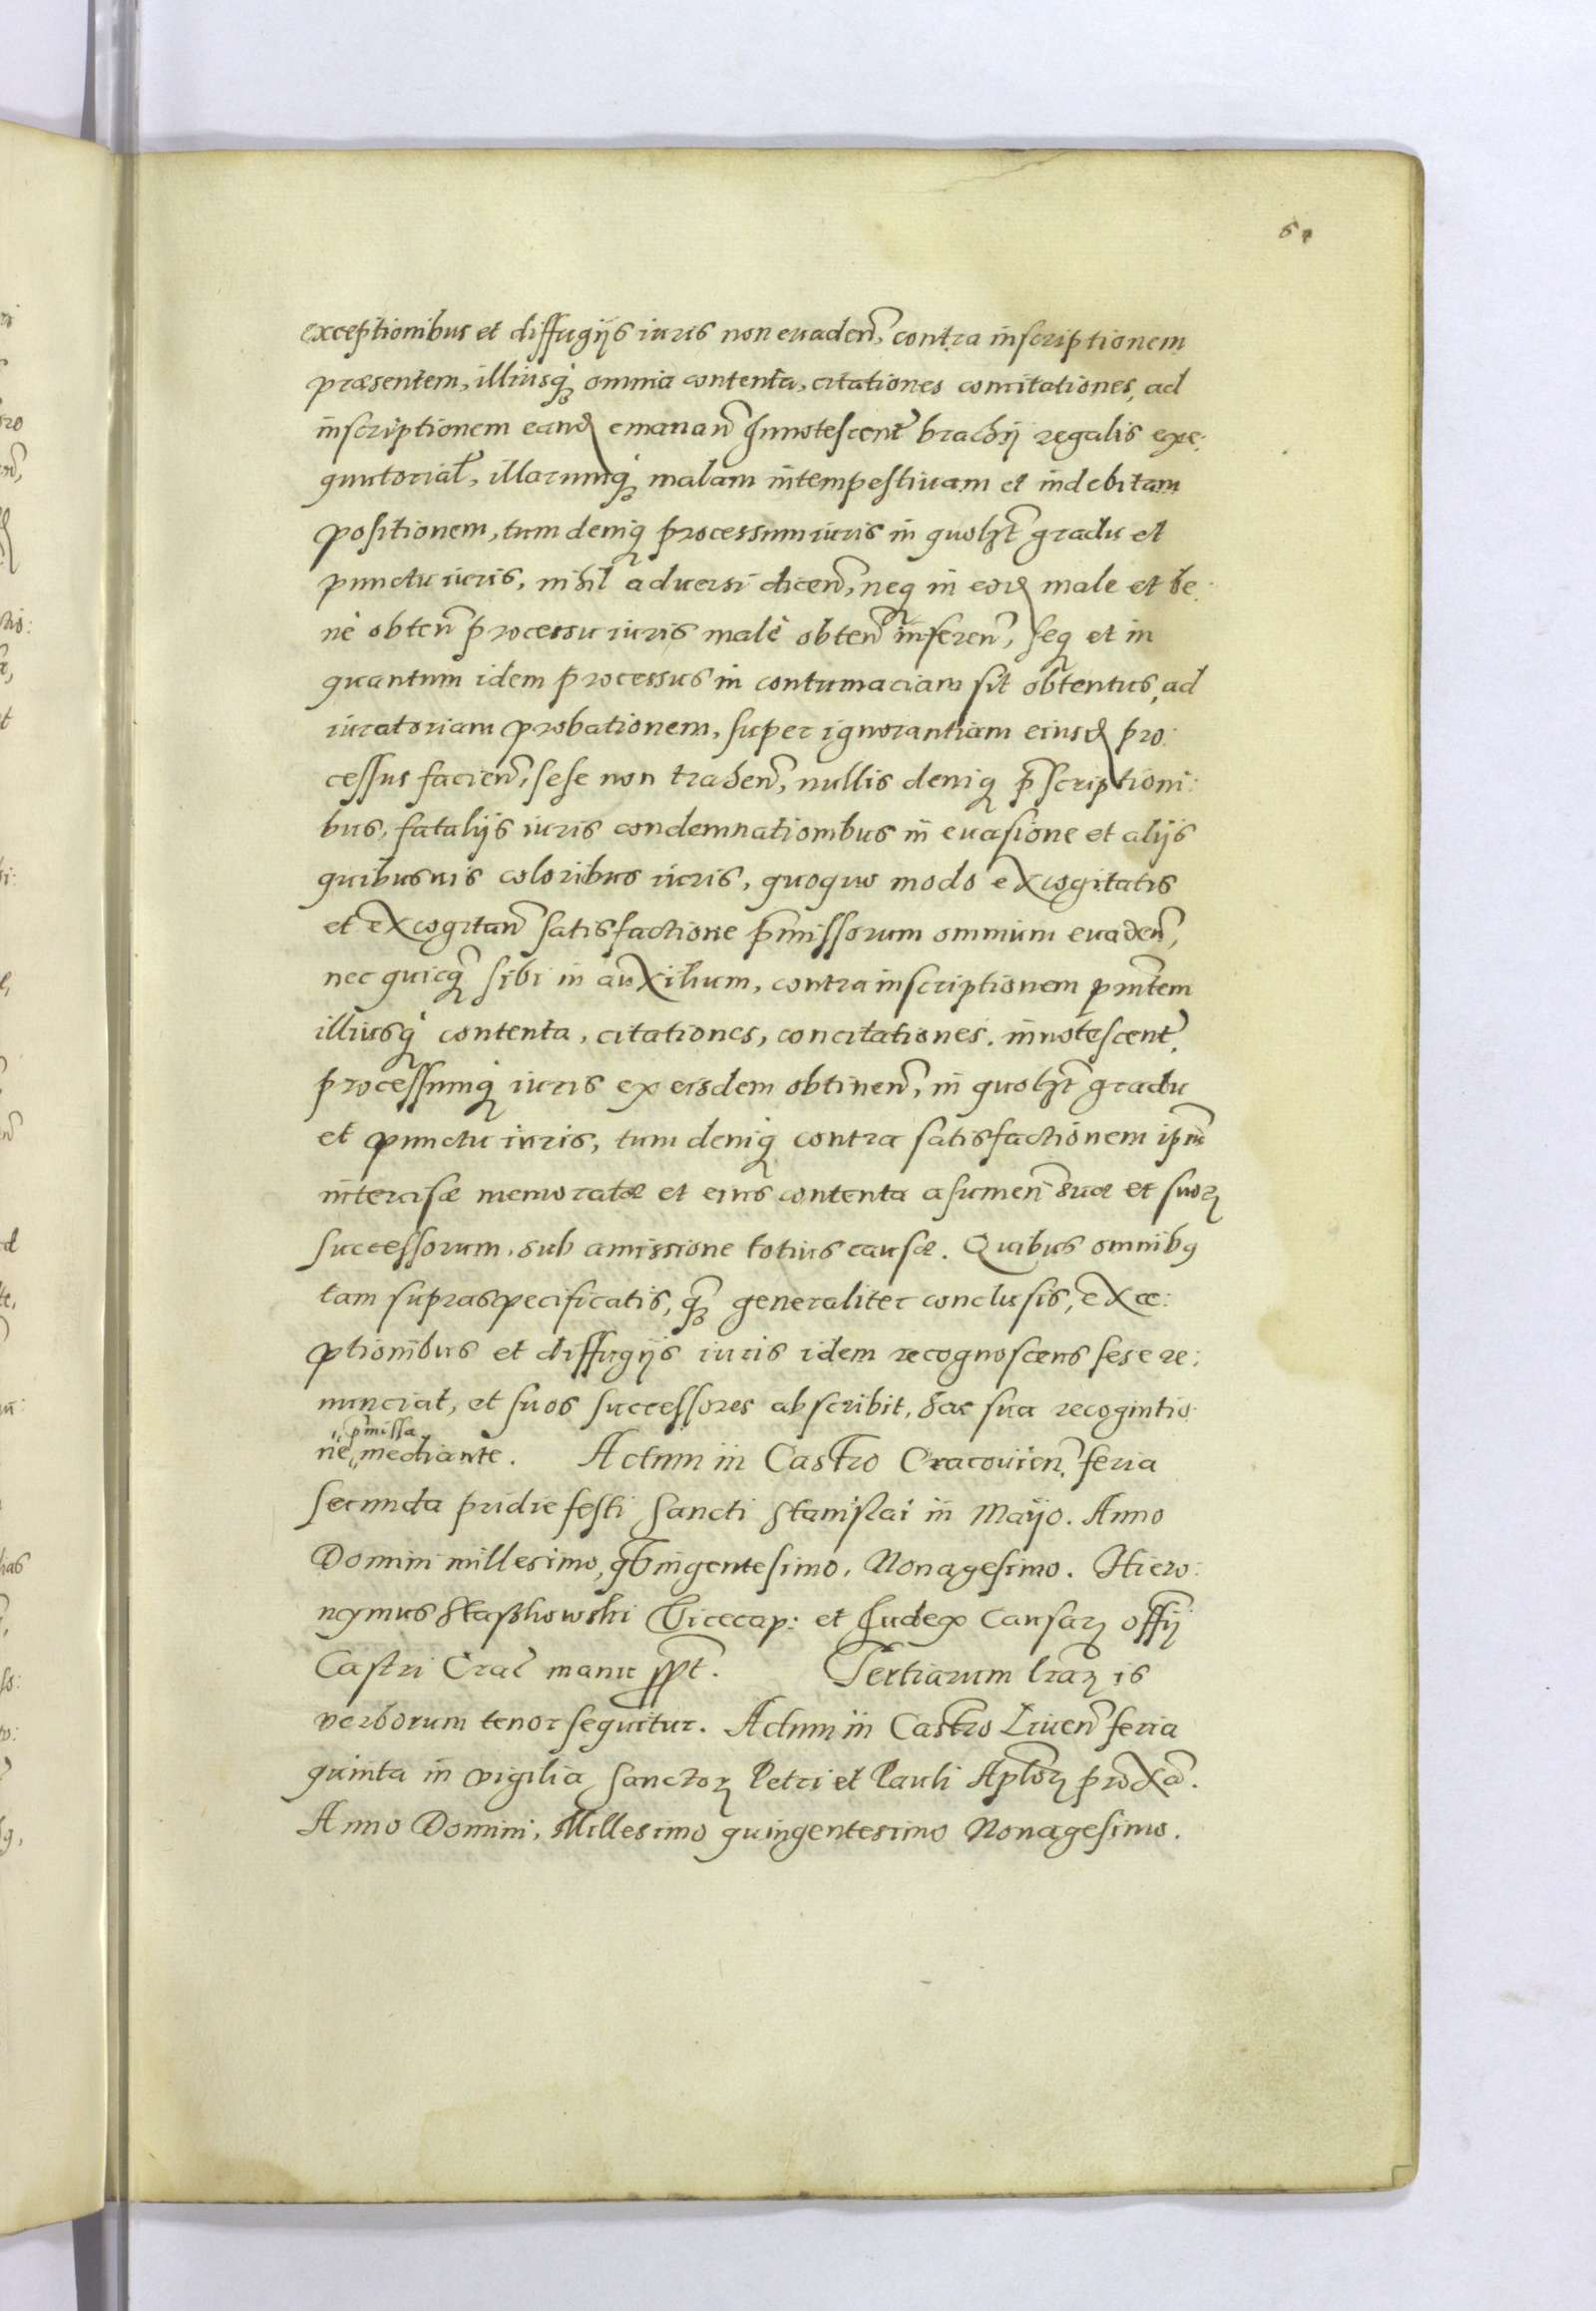 exceptionibus et diffugijs iuris non euaden̄, contra inscriptionem
præsentem, illiusq́ꝫ omnia contenta, citationes concitationes, ad
inscriptionem eand emanan̄ Innotescent̄ brachij regalis exe:
quutorial̄, illarumq́ꝫ malam intempestiuam et indebitam
positionem, tum deniqꝫ processum iuris in quolꝫt gradu et
punctu iuris, nihil aduersi dicen̄, neqꝫ in eod male et be:
nè obten̄ processu iuris malè obten̄ inferen̄, seqꝫ et in
quantum idem processus in contumaciam sit obtentus, ad
iuratoriam probationem, super ignorantiam eiusd pro:
cessus facien̄, sese non trahen̄, nullis deniqꝫ p̄scriptioni:
bus, fatalijs iuris condemnationibus in euasione et alijs
quibusuis coloribus iuris, quoquo modo excogitatis
et excogitan̄ satisfactione p̄missorum omnium euaden̄,
nec quicq̄ꝫ sibi in auxilium, contra inscriptionem pn̄tem
illiusq́ꝫ contenta, citationes, concitationes, innotescent̄,
processumqꝫ iuris ex eisdem obtinen̄, in quolꝫt gradu
et punctu iuris, tum deniqꝫ contra satisfactionem ipm̄
intercisæ memoratæ et eius contenta asumen̄ suæ et suoꝝ
successorum, sub amissione totius causæ. Quibus omnibꝰ
tam supraspecificatis, q̄ꝫ generaliter conclusis, exce:
ptionibus et diffugijs iuris idem recognoscens sese re:
nunciat, et suos successores abscribit, hac sua recognitio:
nè p̄missa mediante. Actum in Castro Cracouien̄. feria
secunda pridie festi Sancti Stanislai in Mayo. Anno
Domini millesimo, quingentesimo, Nonagesimo. Hiero:
nymus Staszkowski Vicecap: et Iudex Causaꝝ offij
Castri Cral̄ manu ppt̄. Tertiarum lr̄aꝝ is
verborum tenor sequitur. Actum in Castro Liuen̄ feria
quinta in vigilia Sanctoꝝ Petri et Pauli Apl̄oꝝ proxa̅.
Anno Domini, Millesimo quingentesimo Nonagesimo.